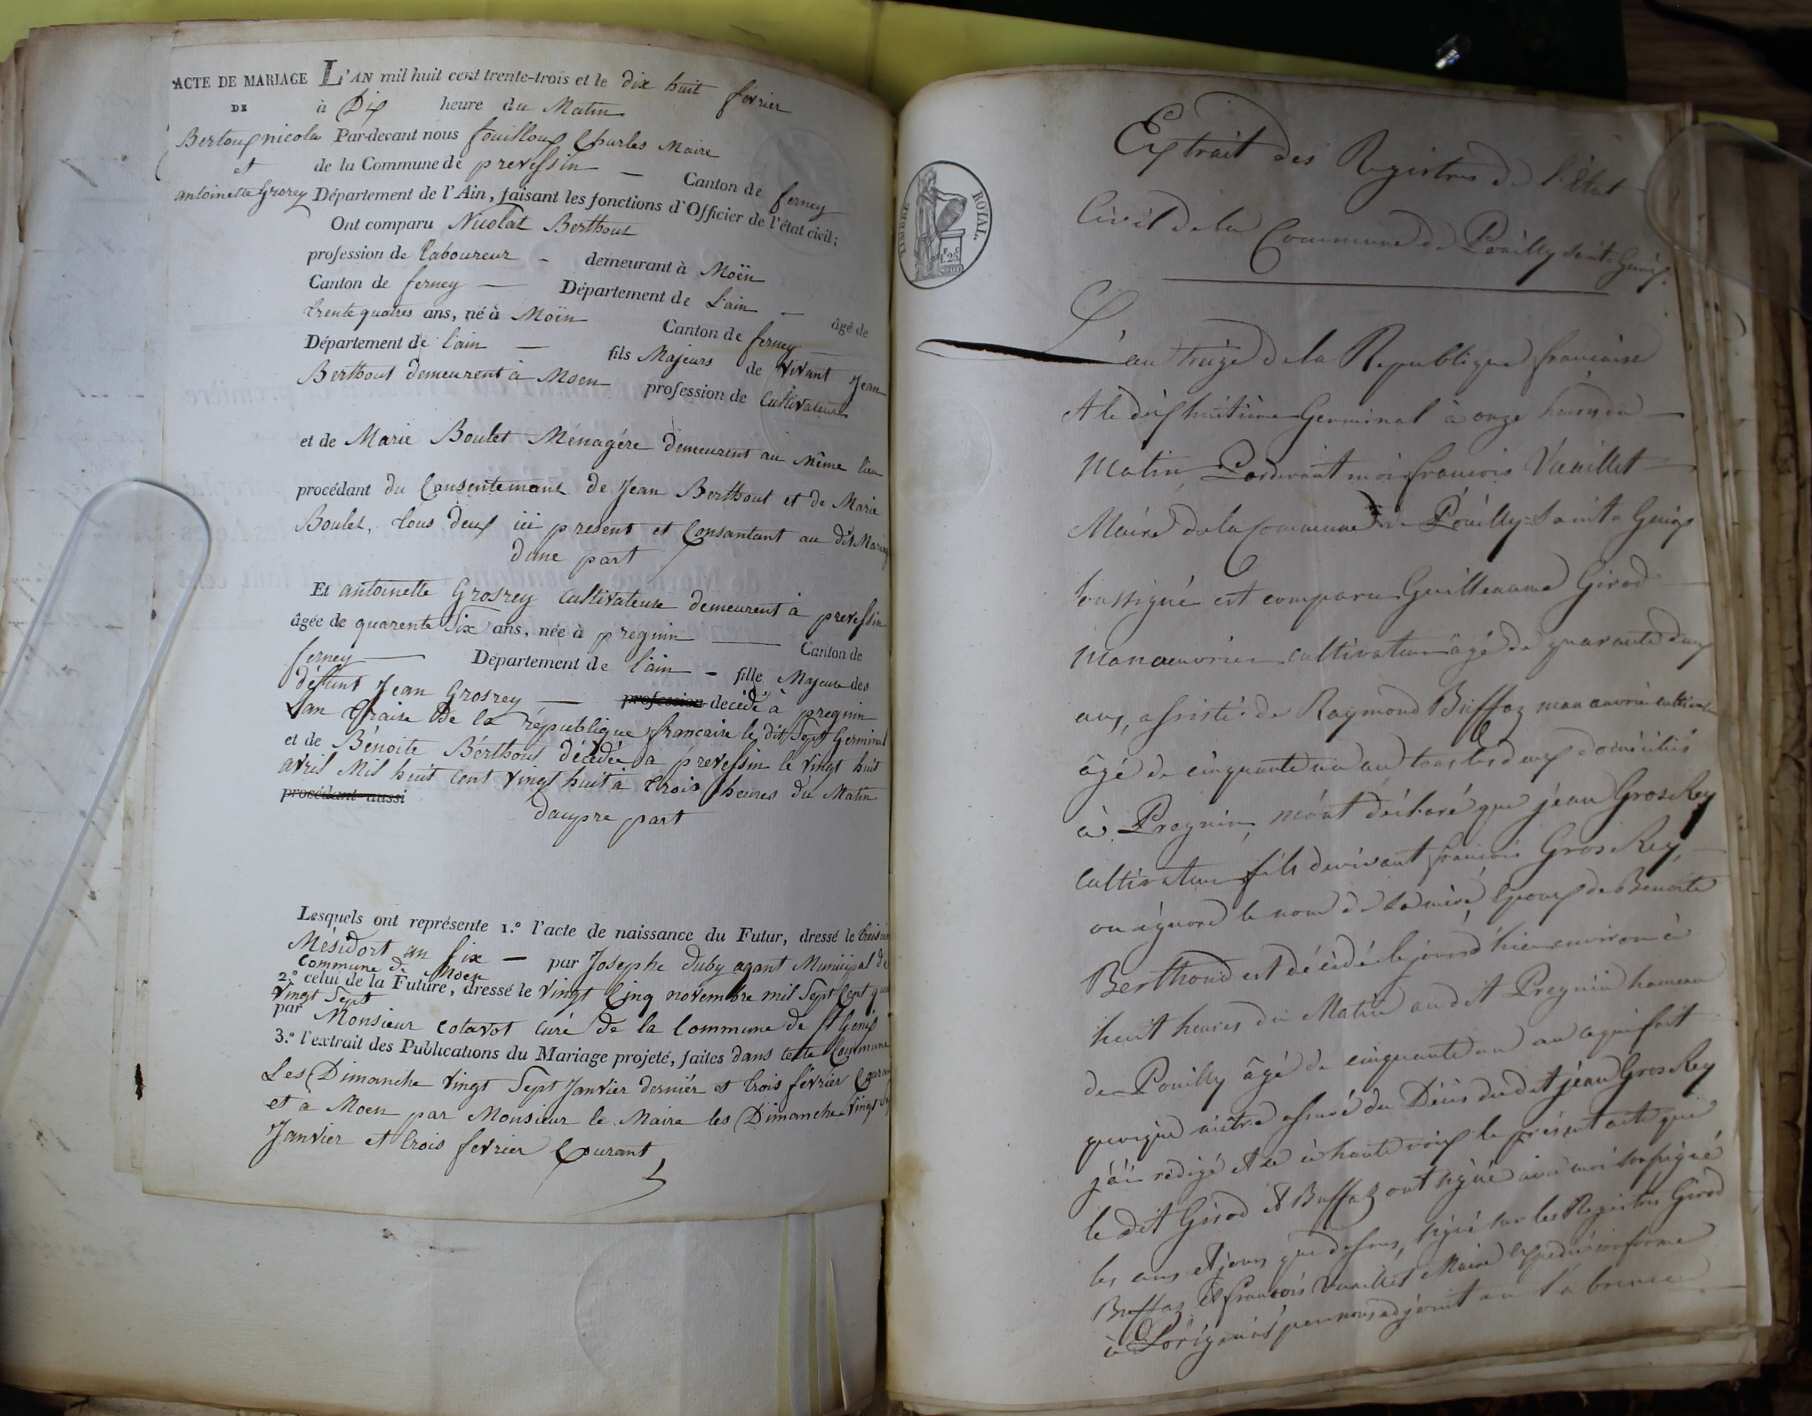 ACTE DE MARIAGE
DE
Bertoux nicola
et
antoinette Grorey
L'AN mil huit cent trente-trois et le dix huit fevrier
à Dix heure du Matin
Par-devant nous fouilloux Charles Maire
de la Commune de prevessin — Canton de ferney
Département de l'Ain, faisant les fonctions d'Officier de l'état civil;
Ont comparu Nicolat Berthout
profession de laboureur - demeurant à Moën
Canton de ferney — Département de L'ain — âgé de
trente quatres ans, né à Moën Canton de ferney
Département de l'ain — fils Majeurs de vivant Jean
Berthout demeurent à Moen profession de Cultivateur
et de Marie Boulet Ménagére demeurent au même lieu
procédant du Consentement de Jean Berthout et de Marie
Boulet, tous deux ici present et Consantant au dit Mariag
dune part
Et antoinette Grosrey cultivateuse demeurent à prevessin
âgée de quarente Six ans, née à pregnin — Canton de
ferney — Département de l'ain - fille Majeure des
défunt Jean Grosrey — profession décédé à pregnin
Lan traise de la république francaire le dit Sept Germinal
et de Bénoite Bérthout décédée a prévessin le vingt huit
avril Mil huit cent vingt huit à trois heures du Matin
procédant aussi
dautre part
Lesquels ont représente 1.° l'acte de naissance du Futur, dressé le trois
Mésidort an Six — par Josephe duby agant Municipal de
Commune de Moen
2.° celui de la Future, dressé le vingt Cinq novembre mil Sept Cent
vingt Sept
par Monsieur cotavot curé de la Commune de St Genis
3.° l'extrait des Publications du Mariage projeté, faites dans tette Commune
Les Dimanche vingt Sept Janvier derniér et trois février
et à Moen par Monsieur le Maire les Dimanche vingt
Janvier et trois fevrier Courant
TIMBRE ROYAL
Extrait des Registres de l'état
Civil de la Commune de Pouilly Saint Genix
L'an treize de la Republique francaise
et le dix huitième Germinal à onze heures du
Matin Pardevant moi francois Vuaillet
Maire de la Commune de Pouilly-Saint Genix
soussigné est comparu Guilleaume Girod
manoeuvrier cultivateur âgé de quarante deux
ans, assisté de Raymond Buffaz manouvrié cultivat
âgé de cinquante un an tous les deux domiciliés
à Pregnin, m'ont déclaré que jean Gros Rey
cultivateur fils de vivant francois Gros Rey,
on ignore le nom de sa mère, Epoux de Benoite
Berthoud est décédé le jour d'hier environ à
huit heures du Matin audit Pregnin hameau
de Pouilly âgé de cinquante un an
assuré du Décès dudit jean Gros Rey
j'ai rédigé et lu à haute voix le présent acte que
le dit Girod et Buffaz ont signé avec moi soussigné
les ans et jours que dessus, signé sur les Registres Girod
Buffaz et francois Vuaillet Maire Expedié conforme
à L'original par nous adjoint